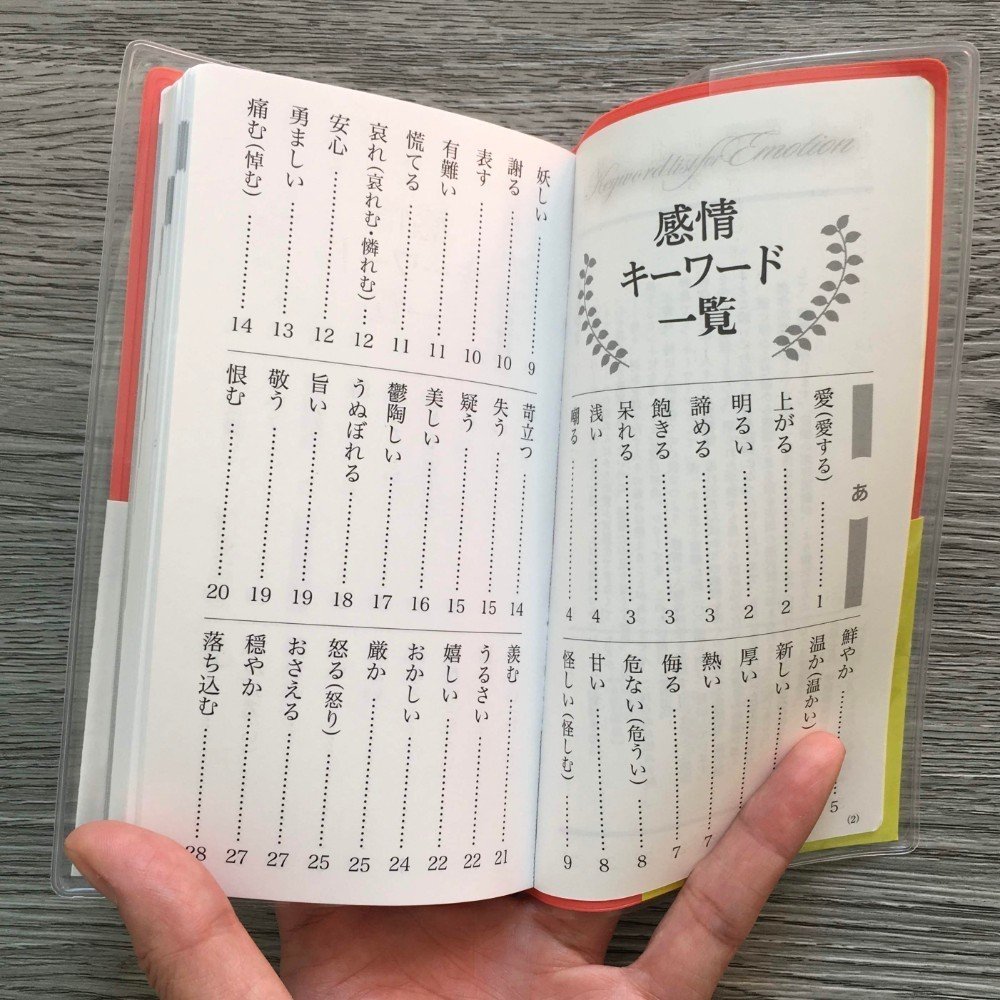 Keyword list for Emotion
感情
キーワード
一覧
あ
愛(愛する)………1
上がる………2
明るい………2
諦める………3
飽きる………3
呆れる………3
浅い………4
嘲る………4
鮮やか………5
温か(温かい)
新しい………
厚い………
熱い………7
侮る………7
危ない(危うい)………8
甘い………8
怪しい(怪しむ)………9
(2)
妖しい………9
謝る………10
表す………10
有難い………11
慌てる………11
哀れ(哀れむ・憐れむ)………12
安心………12
勇ましい………13
痛む(悼む)………14
苛立つ………14
失う………15
疑う………15
美しい………16
鬱陶しい………17
うぬぼれる………18
旨い………19
敬う………19
恨む………20
羨む………21
うるさい………22
嬉しい………22
おかしい………24
厳か………25
怒る(怒り)………25
おさえる………27
穏やか………27
落ち込む………28